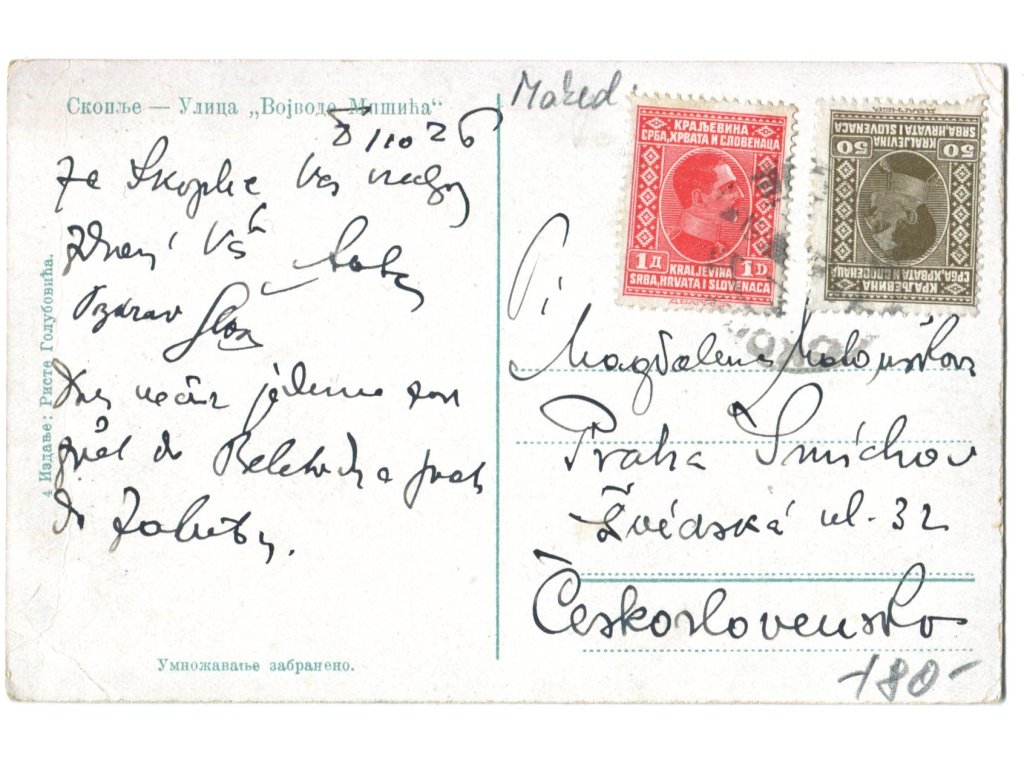 Скопље — Улица „Војводе Мишића“
8/10 26
Ze Skoplje Vás
zdraví Váš
Pozdrav
Dnes večer jedeme
zpět do a pak
do
4 Издање: Ристе Голубовића.
Умножавање забрањено.
Maked.
КРАЉЕВИНА
СРБА, ХРВАТА И СЛОВЕНАЦА
1 Д 1 D
KRALJEVINA
SRBA, HRVATA I SLOVENACA
КРАЉЕВИНА
СРБА, ХРВАТА И СЛОВЕНАЦА
50 50
KRALJEVINA
SRBA, HRVATA I SLOVENACA
Pí
Magdalena
Praha Smíchov
Švédská ul. 32
Československo
180-